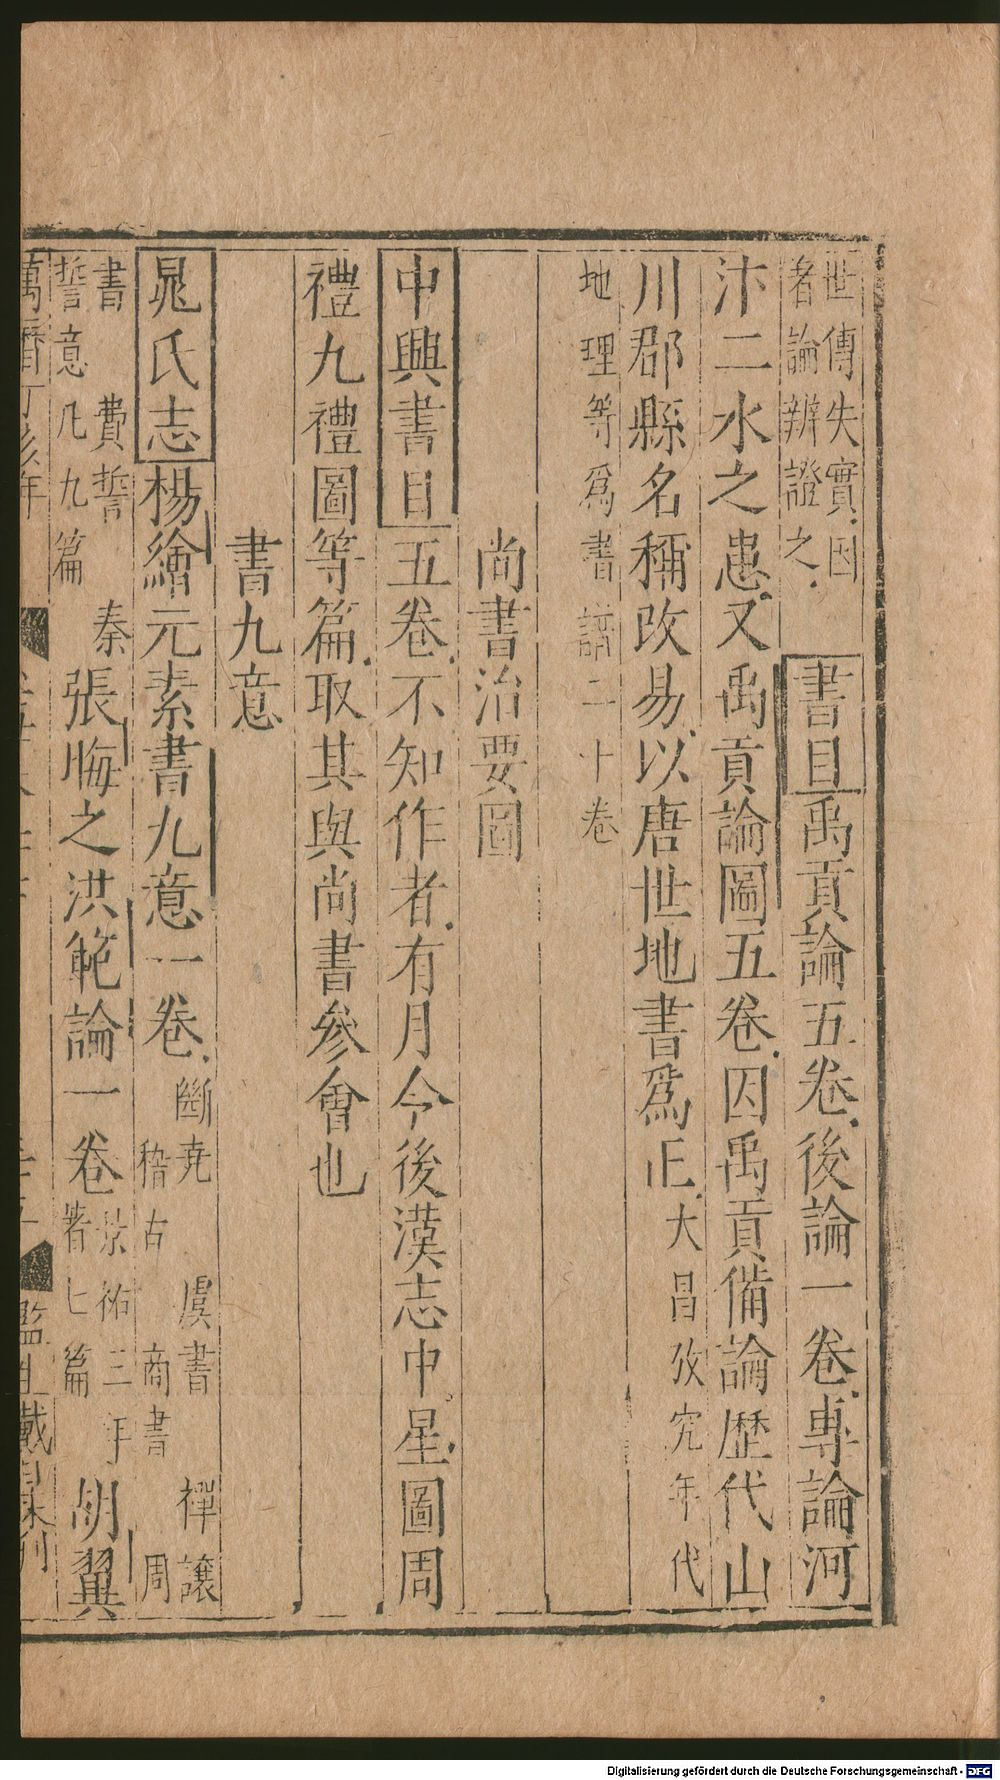 世傳失實因者論辨證之書目禹貢論五卷後論一卷專論河
汴二水之患又禹貢論圖五卷因禹貢備論歷代山
川郡縣名稱改易以唐世地書爲正大昌攷究年代
地理等爲書 二十卷
尚書治要圖
中興書目五卷不知作者有月令後漢志中星圖周
禮九禮圖等篇取其與尚書參會也
書九意
晁氏志楊繪元素書九意一卷斷堯 虞書 禪讓稽古 商書 周
書 費誓 秦誓意凡九篇張晦之洪範論一卷景祐三年著七篇胡翼
萬曆丁亥年 監生戴 刊
Digitalisierung gefördert durch die Deutsche Forschungsgemeinschaft - DFG